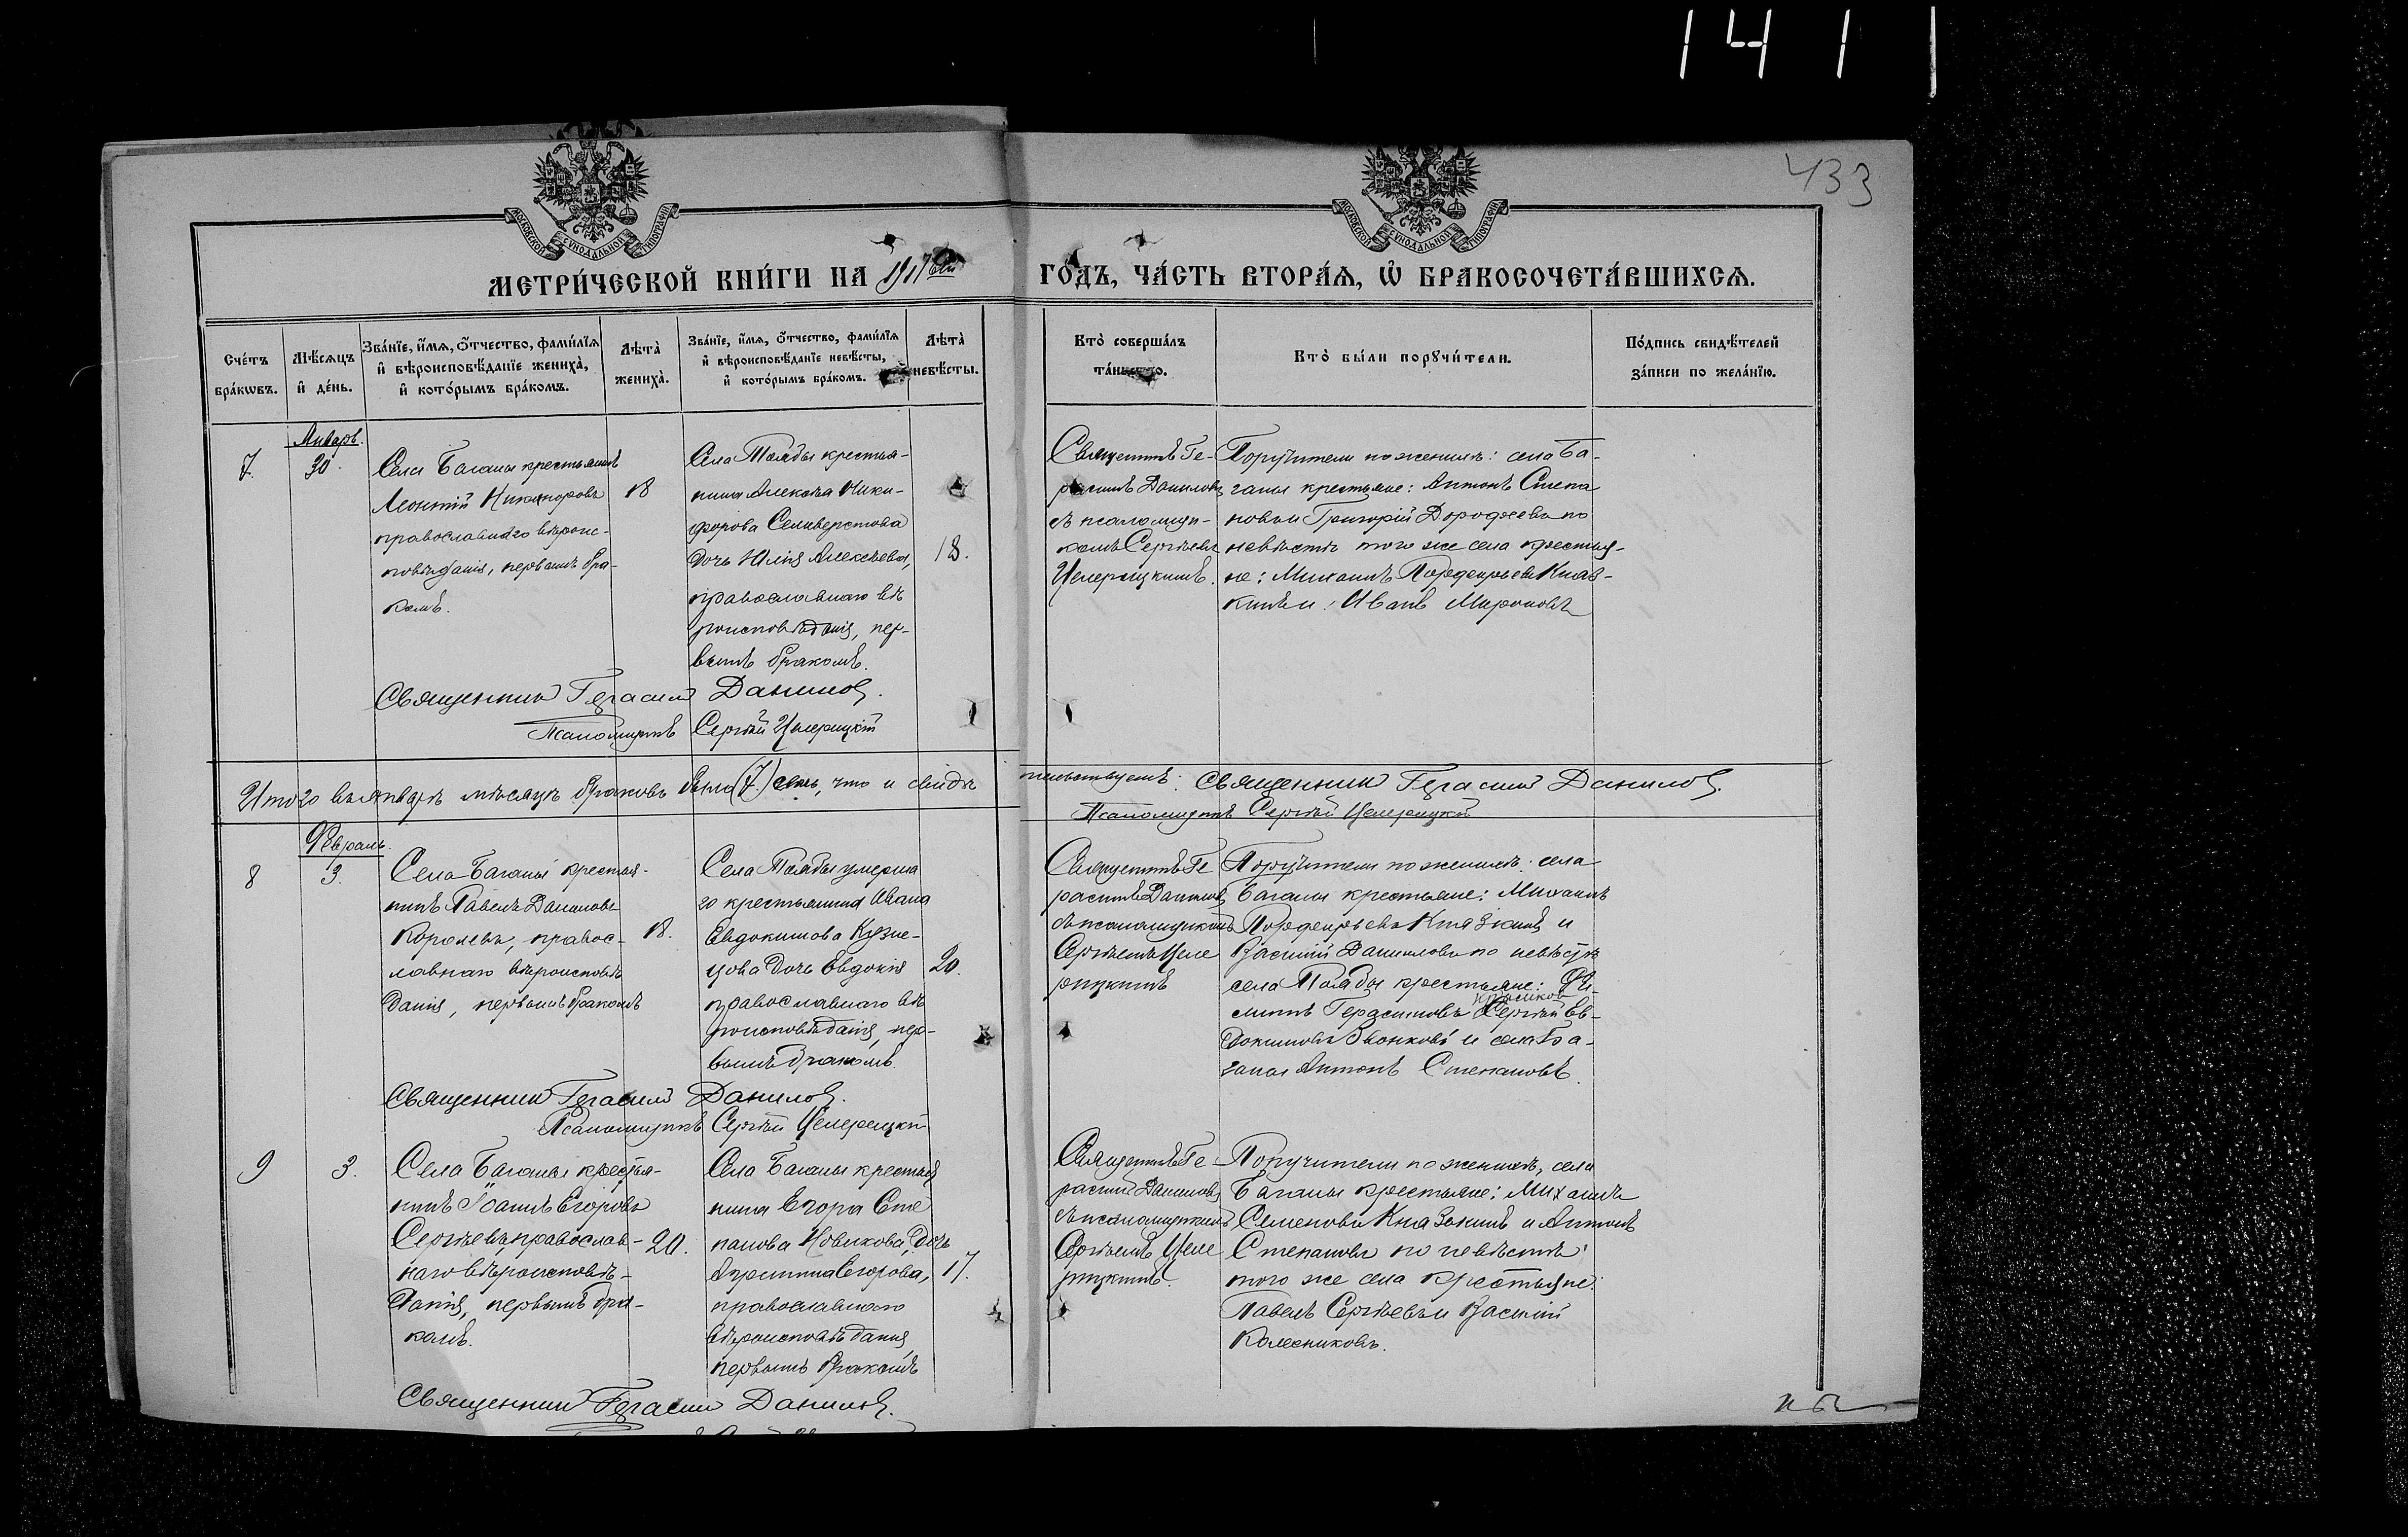 1411
433
МОСКОВСКОЙ СУНОДАЛЬНОЙ ТИПОГРАФІИ
МОСКОВСКОЙ СУНОДАЛЬНОЙ ТИПОГРАФІИ
МЕТРИ́ЧЕСКОЙ КНИ́ГИ НА 1917 ГО́ДЪ, ЧА́СТЬ ВТОРА́Ѧ, Ѡ҆ БРАКОСОЧЕТА́ВШИХСѦ.
Сче́тъ бра́кѡвъ.
Мѣ́сѧцъ и҆ де́нь.
Зва́нїе, и҆́мѧ, ѻ҆́тчество, фами́лїѧ
и҆ вѣроисповѣ́данїе жениха̀,
и҆ кото́рымъ бра́комъ.
Лѣта̀ жениха̀.
Зва́нїе, и҆́мѧ, ѻ҆́тчество, фами́лїѧ
и҆ вѣроисповѣ́данїе невѣ́сты,
и҆ кото́рымъ бра́комъ.
Лѣта̀ невѣ́сты.
Кто̀ соверша́лъ
та́инство.
Кто̀ бы́ли порꙋчи́тели.
По́дпись свидѣ́телей
за́писи по жела́нїю.
Январь.
7.
30.
Села Баганы крестьянинъ
Леонтій Никаноровъ
православнаго вѣроис-
повѣданія, первымъ бра-
комъ.
18
Села крестья-
нина Алексѣя Ники-
форова Селиверстова
дочь Юлія Алексѣева,
православнаго вѣ
роисповѣданія, пер-
вымъ бракомъ.
18.
Священникъ Ге-
расимъ Даниловъ
съ псаломщи-
комъ Сергѣемъ
Поручители по женихѣ: села Ба-
ганы крестьяне: Антонъ Степа
новъ и Григорій Дорофеевъ по
невѣстѣ того же села крестья-
не: Михаилъ Порфирьевъ Княз-
кинъ и Иванъ Мироновъ
Священник Герасим Данилов.
Псаломщикъ Сергѣй
Итого въ январѣ мѣсяцѣ браковъ было (7) семь, что и свидѣ
тельствуемъ: Священник Герасим Данилов.
Псаломщикъ Сергѣй
Февраль.
8
3.
Села Баганы крестья-
нинъ Павелъ Даниловъ
Королевъ, правос-
лавнаго вѣроисповѣ
данія, первымъ бракомъ
18.
Села умерша
го крестьянина Ивана
Евдокимова Кузне-
цова дочь Евдокія
православнаго вѣ
роисповѣданія, пер-
вымъ бракомъ.
20.
Священникъ Ге
расимъ Даниловъ
съ псаломщикомъ
Сергѣемъ
Поручители по женихѣ: села
Баганы крестьяне: Михаилъ
Порфирьевъ Князкинъ и
Василій Даниловъ по невѣстѣ
села крестьяне: Фи-
липпъ Герасимовъ Сергѣй Ев-
докимовъ Звонковъ и села Ба-
ганы Антонъ Степановъ.
Священник Герасим Данилов.
Псаломщикъ Сергѣй
9
3.
Села Баганы крестья-
нинъ Іоаннъ Егоровъ
Сергѣевъ, православ-
наго вѣроисповѣ-
данія, первымъ бра-
комъ.
20.
Села Баганы крестья
нина Егора Сте
панова Новикова, дочь
Егорова,
православнаго
вѣроисповѣданія
первымъ бракомъ
17.
Священникъ Ге
расимъ Даниловъ
съ псаломщикомъ
Сергѣемъ
Поручители по женихѣ, села
Баганы крестьяне: Михаилъ
Семеновъ Князькинъ и Антонъ
Степановъ по невѣстѣ:
того же села крестьяне:
Павелъ Сергѣевъ и Василій
Колесниковъ.
Священник Герасим Данилов.